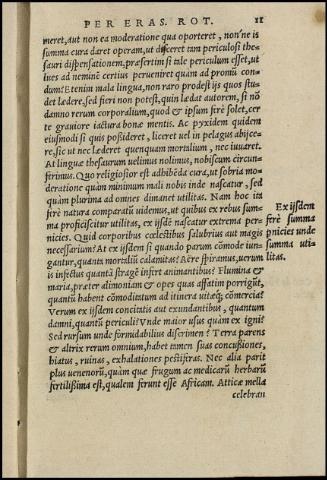 PER ERAS. ROT. 11
meret, aut non ea moderatione qua oporteret, non'ne is
summa cura daret operam, ut disceret tam periculosi the=
sauri dispensationem, præsertim si tale periculum esset, ut
lues ad neminē certius perueniret quàm ad promū con=
dum? Etenim mala lingua, non raro prodest ijs quos stu=
det lædere, sed fieri non potest, quin lædat autorem, si nō
damno rerum corporalium, quod & ipsum ferè solet, cer
te grauiore iactura bonæ mentis. Ac pyxidem quidem
eiusmodi si quis posśideret, liceret uel in pelagus abijce=
re, sic ut nec læderet quenquam mortalium, nec iuuaret.
At linguæ thesaurum uelimus nolimus, nobiscum circun=
ferimus. Quo religiosior est adhibēda cura, ut sobria mo=
deratione quàm minimum mali nobis inde nascatur, sed
quàm plurima ad omnes dimanet utilitas. Nam hoc ita
ferè natura comparatū uidemus, ut quibus ex rebus sum=
ma proficiscitur utilitas, ex ijsdē nascatur extrema per=
nicies. Quid corporibus cœlestibus salubrius aut magis
necessarium? At ex ijsdem si quando parum cōmode iun=
gantur, quantū mortaliū calamitas? Aëre spiramus, uerum
is infectus quantā stragē infert animantibus? Flumina &
maria, præter alimoniam & opes quas affatim porrigūt,
quantū habent cōmoditatum ad itinera uitæq; cōmercia?
Verum ex ijsdem concitatis aut exundantibus, quantum
damni, quantū periculi? Vnde maior usus quàm ex igni?
Sed rursum unde formidabilius discrimen? Terra parens
& altrix rerum omnium, habet tamen suas concusśiones,
hiatus, ruinas, exhalationes pestiferas. Nec alia parit
plus uenenorū, quàm quæ frugum ac medicarū herbarū
fertilisśima est, qualem ferunt esse Africam. Atticæ mella
celebran
Ex ijsdem
ferè summa
pnicies unde
summa uti=
litas.